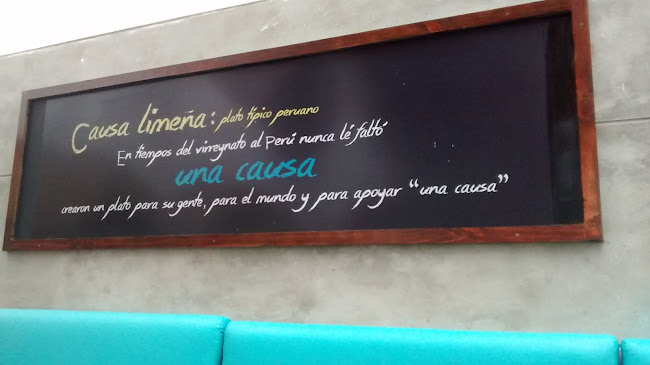 Causa limeña: plato típico peruano
En tiempos del virreynato al Perú nunca lé faltó
una causa
crearon un plato para su gente, para el mundo y para apoyar "una causa"